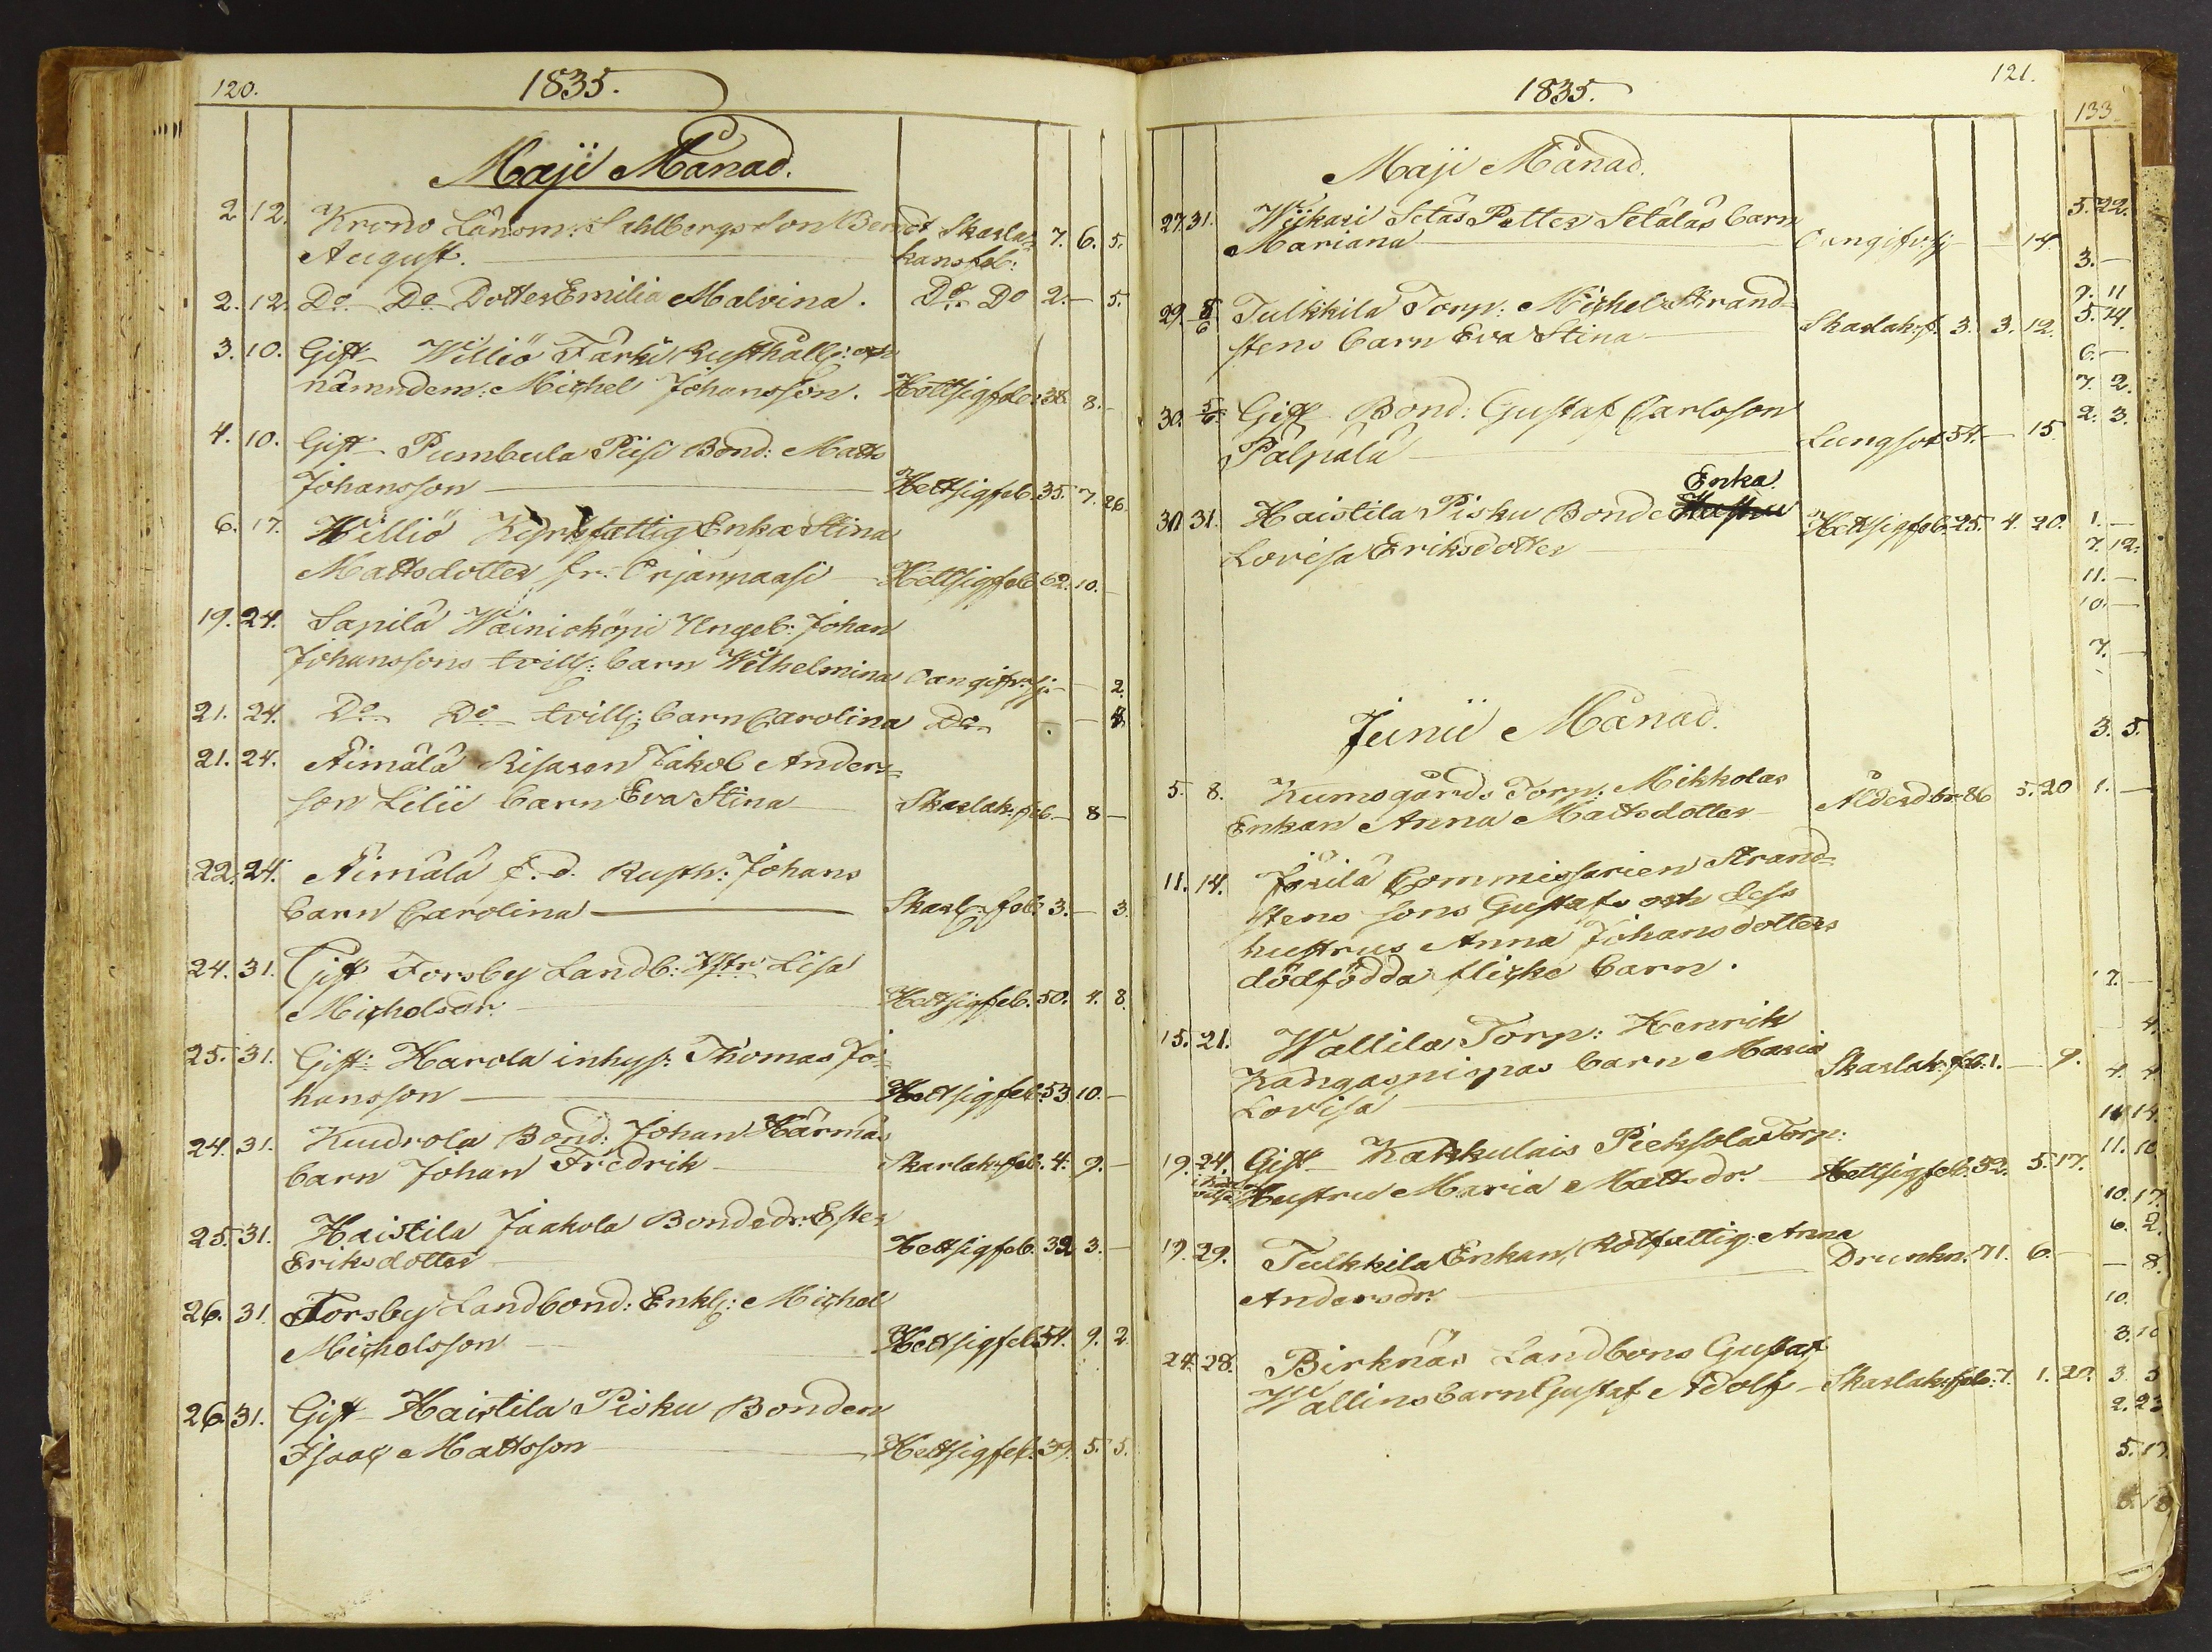 120.
1835.
Maji Månad.
2. 12. Krono Länsm: Sahlbergs Son Bernd Skarla- 7. 6. 5.
August. kansfeb:
2. 12. Do Do Dotter Emilia Malvina. Do Do 2. - 5.
3. 10. Gift Williö Färki Rusthåll: och
nämndem: Michel Johansson. Hettsigfeb: 38. 8. -
4. 10. Gift Pumbula Piisi Bond: Matts
Johansson Hettsigfeb. 35. 7. 26.
6. 17. Williö Enka Stina
Mattsdotter fr. Hettsigfeb. 62. 10. -
19. 24. Sapilä Wäiniököpi Ungeb: Johan
Johanssons tvill: barn Wilhelmina Oangifv: sj: - - 2.
21. 24. Do Do tvill: barn Carolina Do - - 4.
21. 24. Äimälä Risasen Jakob Anders-
son Lilii barn Eva Stina Skarlak: feb. - 8 -
22. 24. Äimälä f. d. Rusth: Johans
barn Carolina Skarl: feb. 3. - 3.
24. 31. Gift Forsby Landb: Hstr Lisa
Michelsdr. Hettsigfeb. 50. 4. 8.
25. 31. Gift: Harola inhys: Thomas Jo-
hansson Hettsigfeb. 53 10. -
24. 31. Kuudrola Bond: Johan Härmäs
barn Johan Fredrik Skarlak: feb. 4. 9. -
25. 31. Haistila Jaakola Bondedr. Ester
Eriksdotter Hettsigfeb. 32 3. -
26. 31. Forsby Landbond: Enkl: Michel
Michelsson Hettsigfeb. 54. 9. 2.
26. 31. Gift Haistila Pisku Bonden
Isaac Mattsson Hettsigfeb. 39. 5. 5.
121.
1835.
Maji Månad.
27. 31. Wiikari Setäs Petter Setäläs barn
Mariana Oangifv: sj: 14
29. 8/6 Tulkkila Torp: Michel Strand-
stens barn Eva Stina Skarlak: f. 3. 3. 12.
30. 5/6 Gift Bond: Gustaf Carlsson
Pälpälä Lungsot 54. - 15.
Enka
31. 31. Haistila Pisku Bonde Hustru Hettsigfeb. 25. 4. 20.
Lovisa Eriksdotter
Junii Månad.
5. 8. Kumogårds Torp: Mikkolas
Enkan Anna Mattsdotter Ålderdbr. 86 5. 20
11. 14. Jäsilä Commissarien Strand-
stens sons Gustafs och dess
hustrus Anna Johansdotters
dödfödda flicke barn.
15. 21. Wallila Torp: Henrik
Kangasnipas barn Maria Skarlak: feb: 1. - 9.
Lovisa
19. 24. Gift Kakkulais Pieksola Torp:
Hustru Maria Mattsdr. Hettsigfeb. 52. 5. 17.
19. 29. Tulkkila Enkan, Rotfattig: Anna
Andersdr. Drunkn. 71. 6. -
24. 28. Birknäs Landbons Gustaf
Wallins barn Gustaf Adolf Skarlak: feb. 7. 1. 20.
133.
5. 22.
3. -
9. 11
5. 24.
6. -
7. 2.
2. 3.
1. -
7. 12.
11. -
10. -
7. -
3. 5.
1. -
7. -
4.
4. 4
11. 14.
11. 10
10. 17.
6. 2.
- 8.
10.
3. 10
3. 5
2. 23
5. 17.